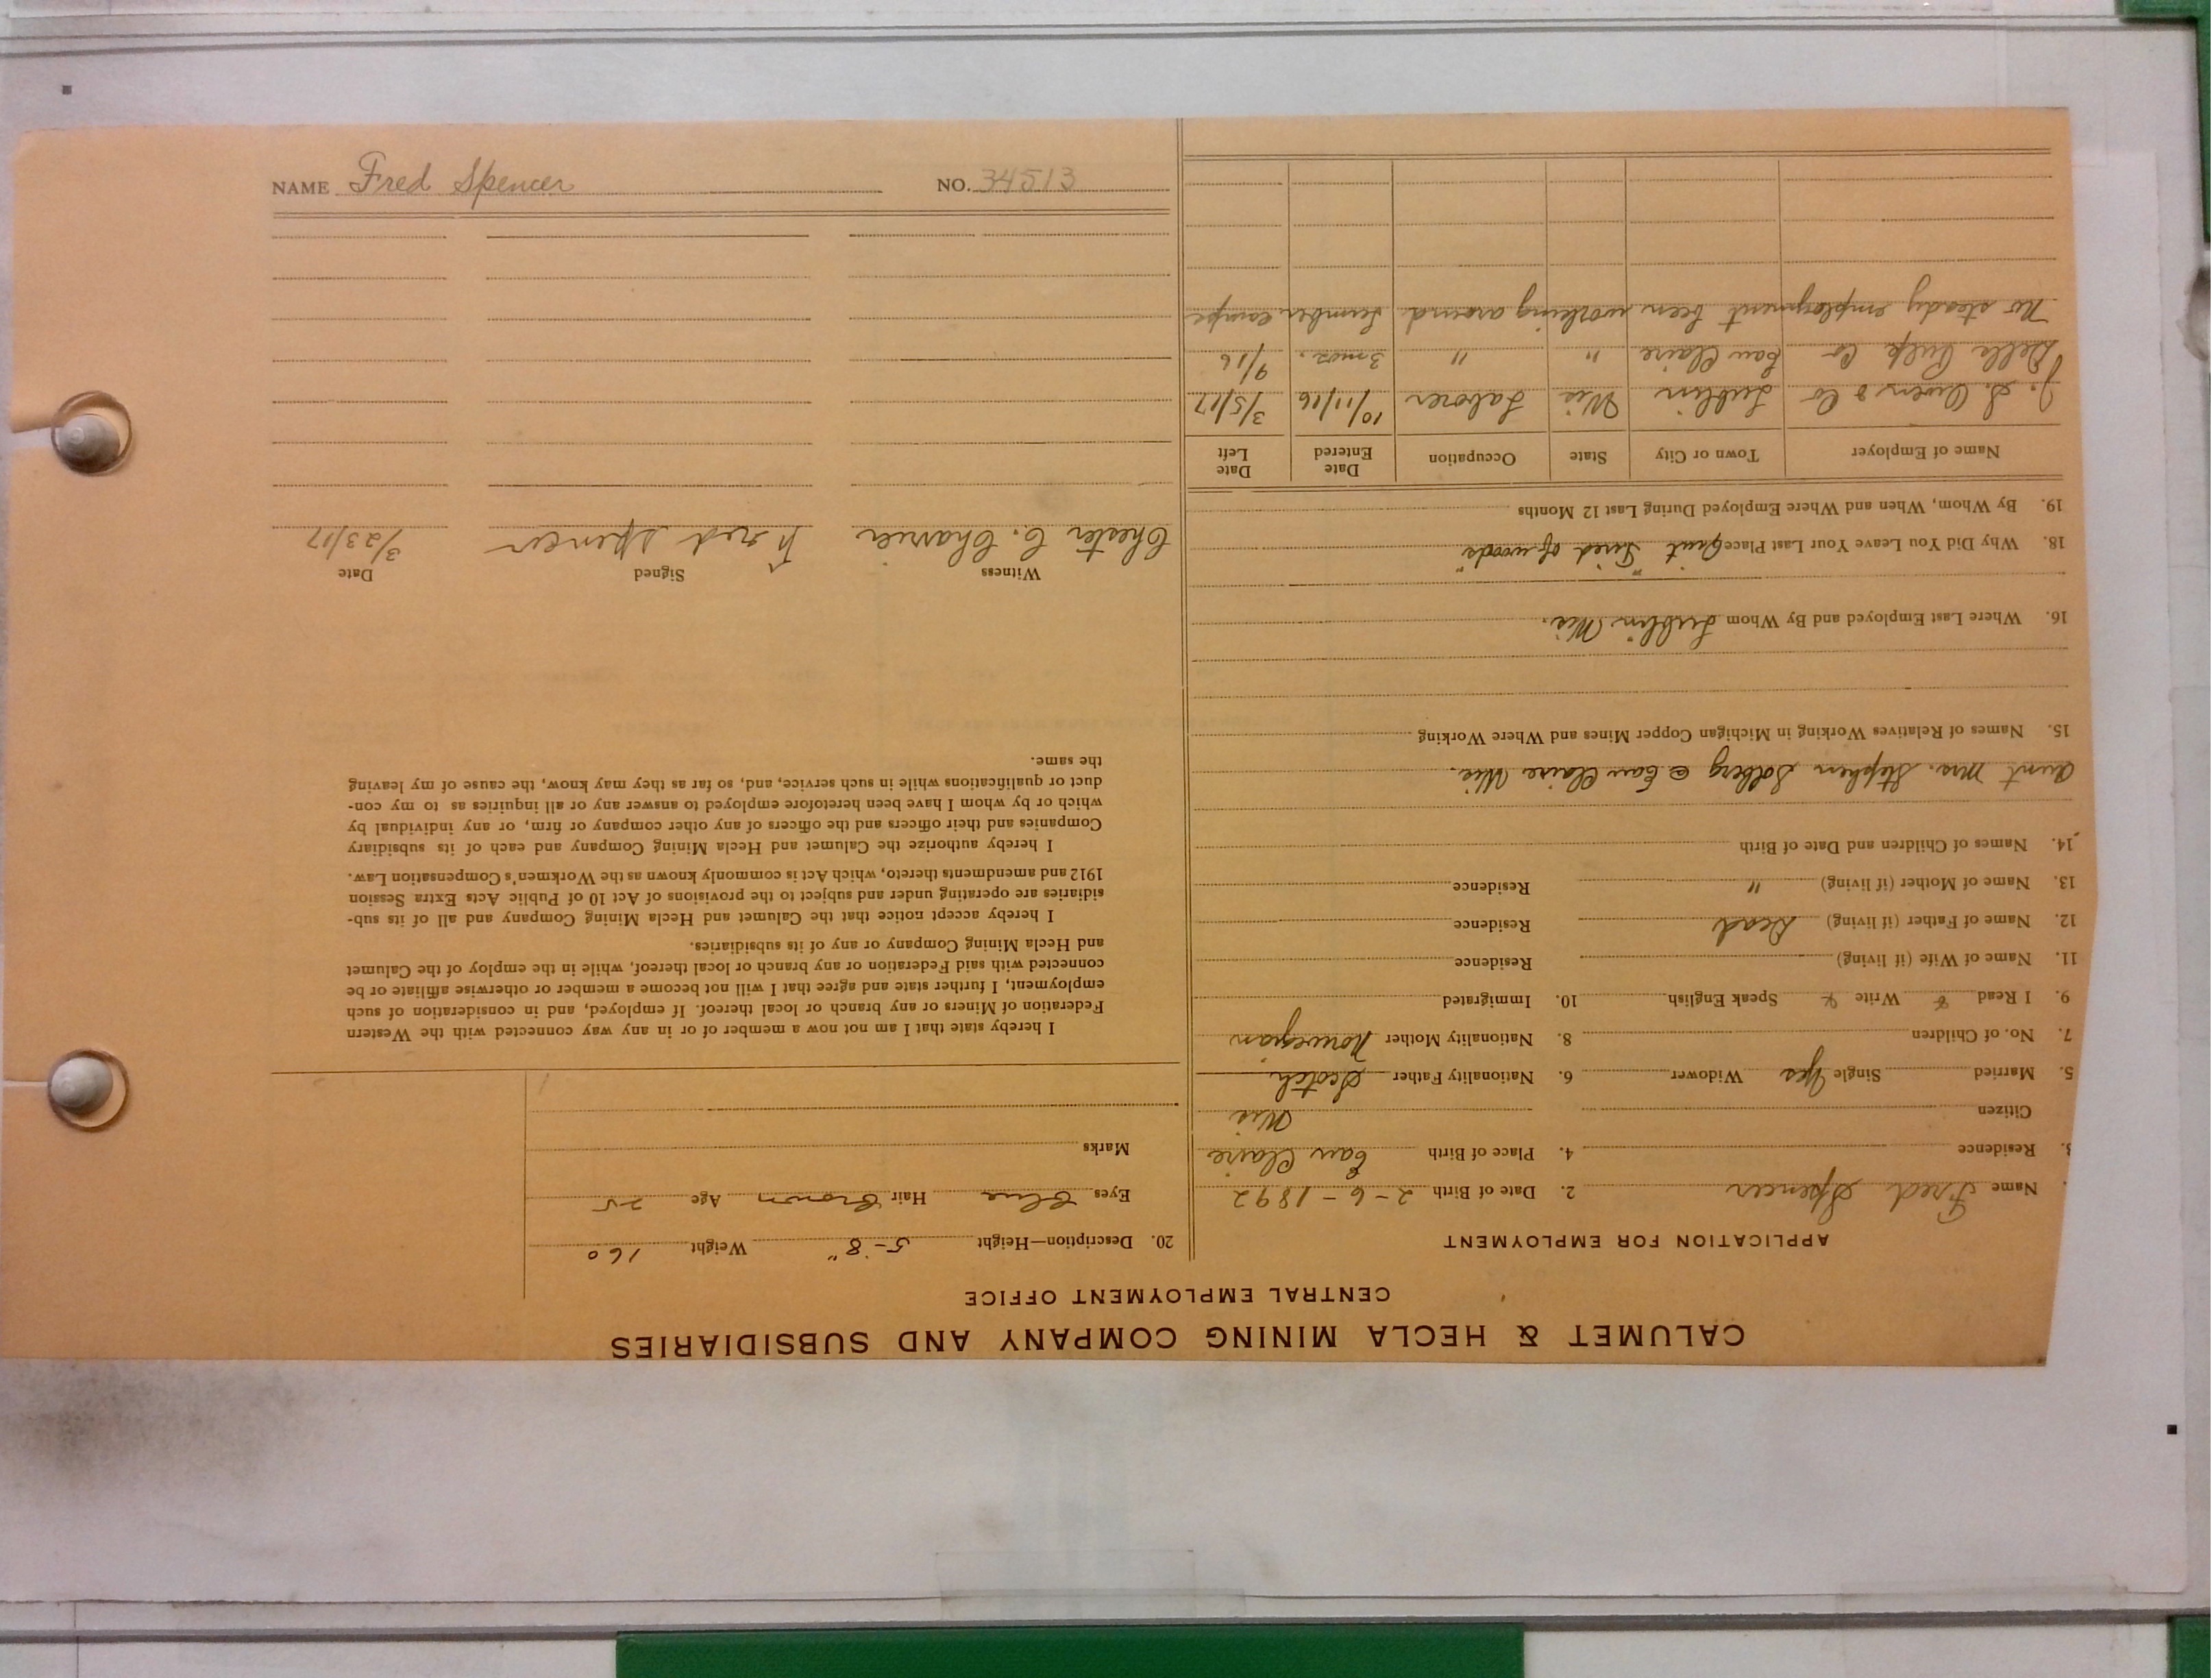 NAME Fred Spencer NO. 34513
CALUMET & HECLA MINING COMPANY AND SUBSIDIARIES
CENTRAL EMPLOYMENT OFFICE
APPLICATION FOR EMPLOYMENT
Name Fred Spencer 2. Date of Birth 2-6-1892
3. Residence 4. Place of Birth Eau Claire
Citizen Wis
5. Married Single Yes Widower 6. Nationality Father Scotch
7. No. of Children 8. Nationality Mother Norwegian
9. I Read Write Speak English 10. Immigrated
11. Name of Wife (if living) Residence
12. Name of Father (if living) Dead Residence
13. Name of Mother (if living) " Residence
14. Names of Children and Date of Birth
Aunt Mrs. Stephen Solberg @ Eau Claire Wis.
15. Names of Relatives Working in Michigan Copper Mines and Where Working
16. Where Last Employed and By Whom Lublin Wis.
18. Why Did You Leave Your Last Place Quit "Tired of woods"
19. By Whom, When and Where Employed During Last 12 Months
Name of Employer Town or City State Occupation Date Entered Date Left
J. S. Owens & Co Lublin Wis Laborer 10/11/16 3/5/17
Dells Pulp Co Eau Claire " " 3 mos. 9/16
No steady employment been working around lumber camps
20. Description—Height 5-8" Weight 160
Eyes Blue Hair Brown Age 25
Marks
I hereby state that I am not now a member of or in any way connected with the Western
Federation of Miners or any branch or local thereof. If employed, and in consideration of such
employment, I further state and agree that I will not become a member or otherwise affiliate or be
connected with said Federation or any branch or local thereof, while in the employ of the Calumet
and Hecla Mining Company or any of its subsidiaries.
I hereby accept notice that the Calumet and Hecla Mining Company and all of its sub-
sidiaries are operating under and subject to the provisions of Act 10 of Public Acts Extra Session
1912 and amendments thereto, which Act is commonly known as the Workmen's Compensation Law.
I hereby authorize the Calumet and Hecla Mining Company and each of its subsidiary
Companies and their officers and the officers of any other company or firm, or any individual by
which or by whom I have been heretofore employed to answer any or all inquiries as to my con-
duct or qualifications while in such service, and, so far as they may know, the cause of my leaving
the same.
Witness Signed Date
Chester C. Fred Spencer 3/23/17